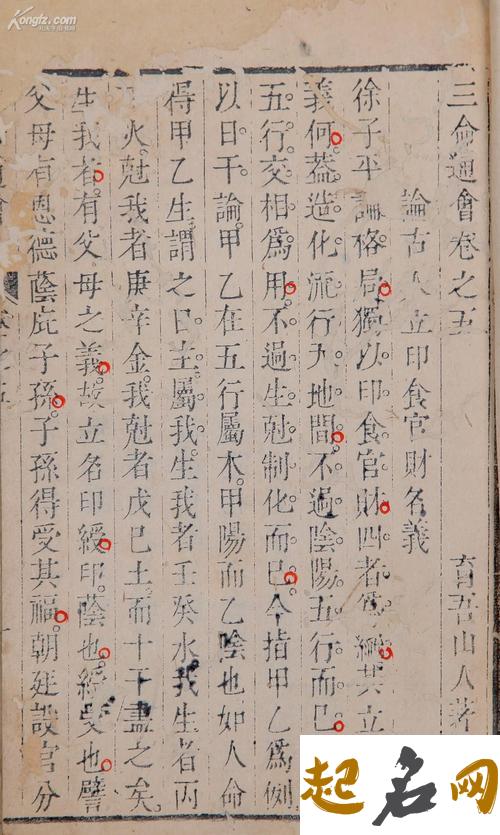 三命通會卷之五
育吾山人著
論古人立印食官財名義
徐子平論格局獨以印食官財四者爲綱其立
義何。蓋造化流行天地間。不過陰陽五行而已。
五行。交相爲用。不過生尅制化而已。今指甲乙爲例
以日干。論。甲乙在五行屬木。甲陽而乙陰也如人命
得甲乙生謂之日主。屬我。生我者壬癸水。我生者丙
丁火。尅我者庚辛金。我尅者戊己土。而十干盡之矣。
生我者。有父母之義。故立名印綬。印。蔭也。綬。受也。譬
父母有恩德蔭庇子孫。子孫得受其福。朝廷設官分
Kongfz.com
起名网